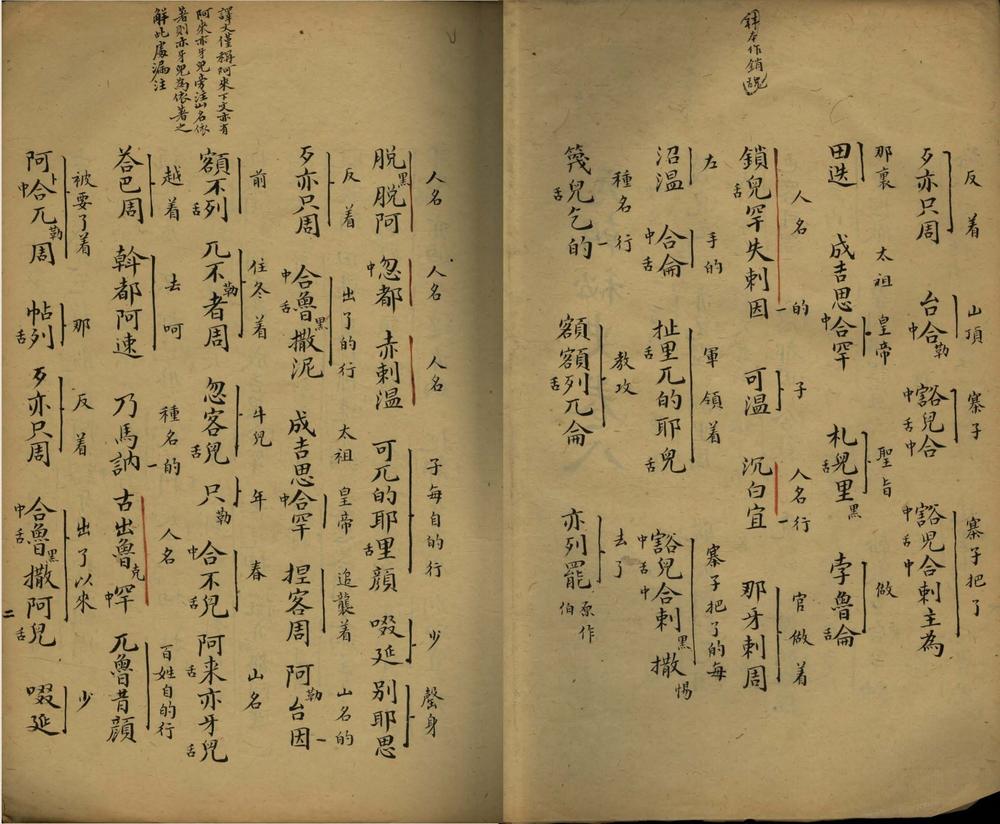 反着 山頂 寨子 寨子把了
歹亦只周 台中合勒 中豁舌兒中合 中豁舌兒中合剌主為
那裏 太祖 皇帝 聖旨 做
田迭 成吉思中合罕 札舌兒里黑 孛魯舌侖
人名 的 子 人名行 官做着
鎖舌兒罕失剌因 可溫 沉白宜 那牙剌周
左手的 軍領着 寨子把了的每
沼溫 中合舌侖 扯舌里兀的耶舌兒 中豁舌兒中合剌黑撒惕
種名行 教攻 去了
篾舌兒乞的 額額舌列兀侖 亦列罷 原作伯
人名 人名 人名 子每自的行 少 罄身
脱黑脱阿 中忽都 赤剌溫 可兀的耶舌里顏 啜延 別耶思
反着 出了的行 太祖 皇帝 追襲着 山名的
歹亦只周 中合舌魯黑撒泥 成吉思中合罕 捏客周 阿勒台因
前 住冬着 牛兒 年 春 山名
額不舌列 兀不勒者周 忽客舌兒 只勒 中合不舌兒 阿舌来亦牙舌兒
越着 去呵 種名的 人名 百姓自的行
荅巴周 斡都阿速 乃馬訥 古出魯克中罕 兀魯昔顏
被要了着 那 反着 出了以來 少
阿中合兀勒周 帖舌列 歹亦只周 中合舌魯黑撒阿舌兒 啜延
譯文僅稱阿來下文亦有
阿來亦牙兒旁注山名依
著則亦牙兒為依著之
解此處漏注
二